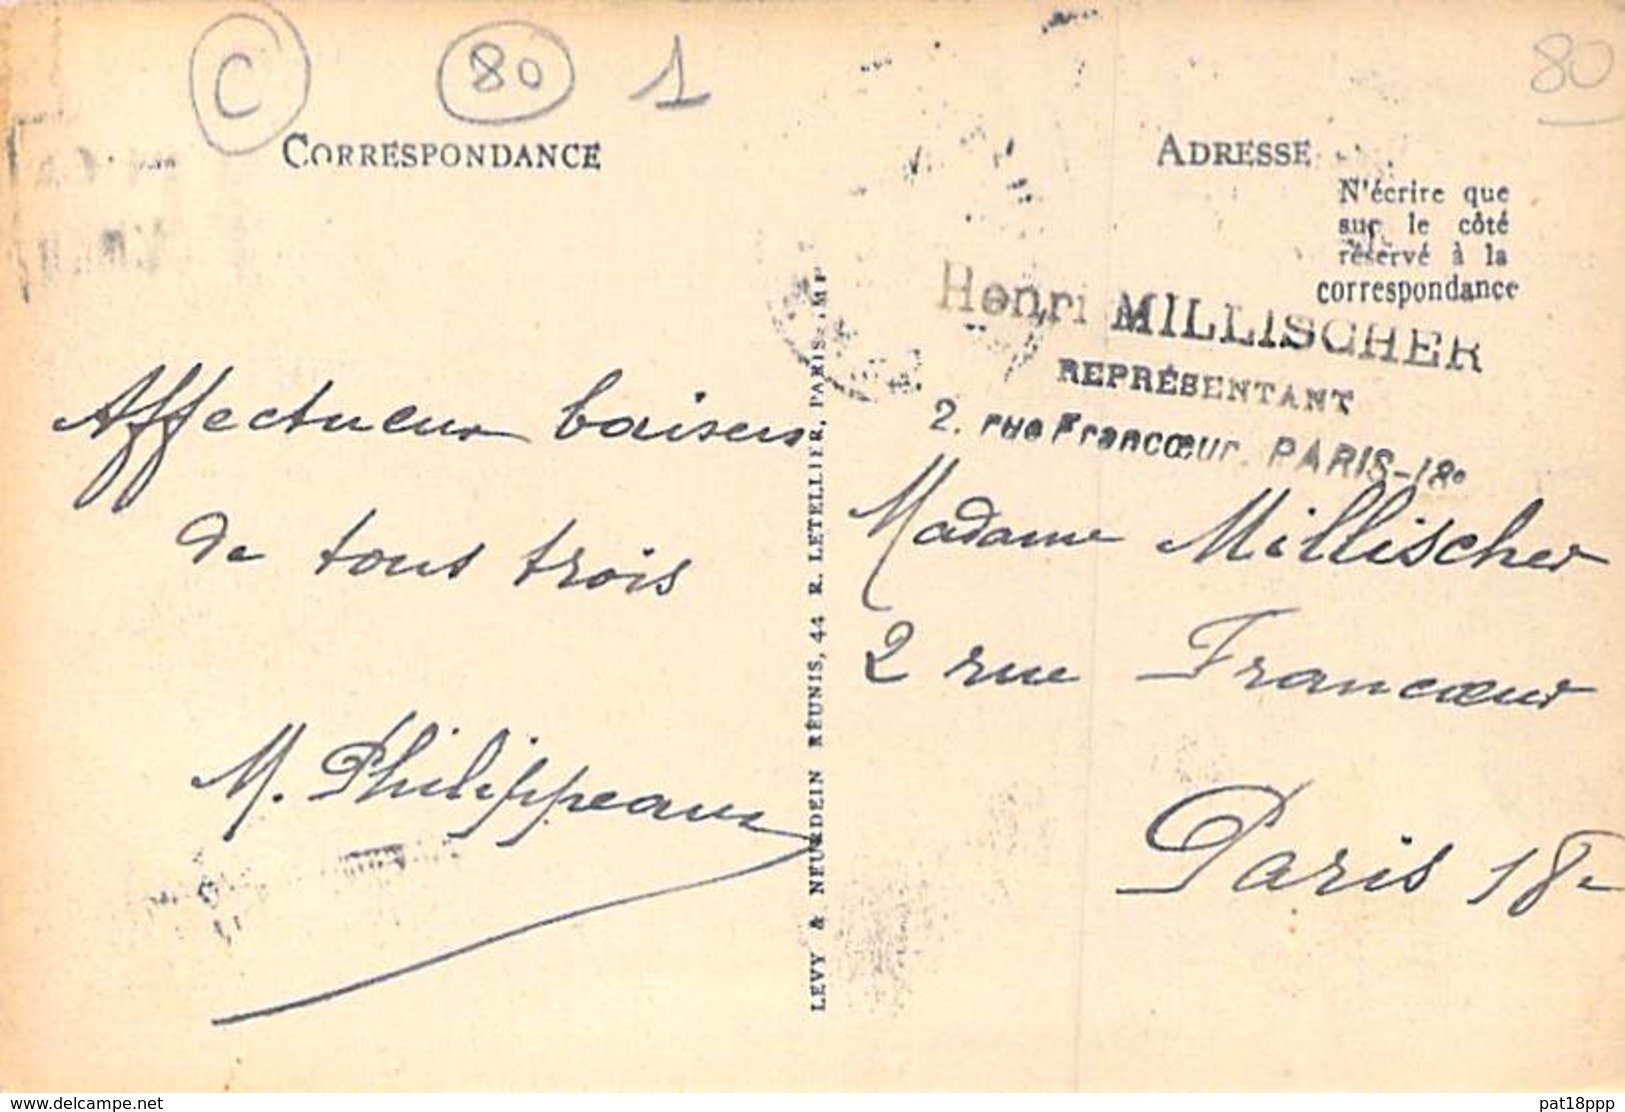 C
80
1
80
CORRESPONDANCE
ADRESSE
N'écrire que
sur le côté
réservé à la
correspondance
Henri MILLISCHER
REPRÉSENTANT
2, rue Francœur, PARIS-18e
Affectueux baisers
de tous trois
M. Philippeaux
LEVY & NEURDEIN RÉUNIS, 44 R. LETELLIER, PARIS-IMP
Madame Millischer
2 rue Francœur
Paris 18e
www.delcampe.net
pat18ppp